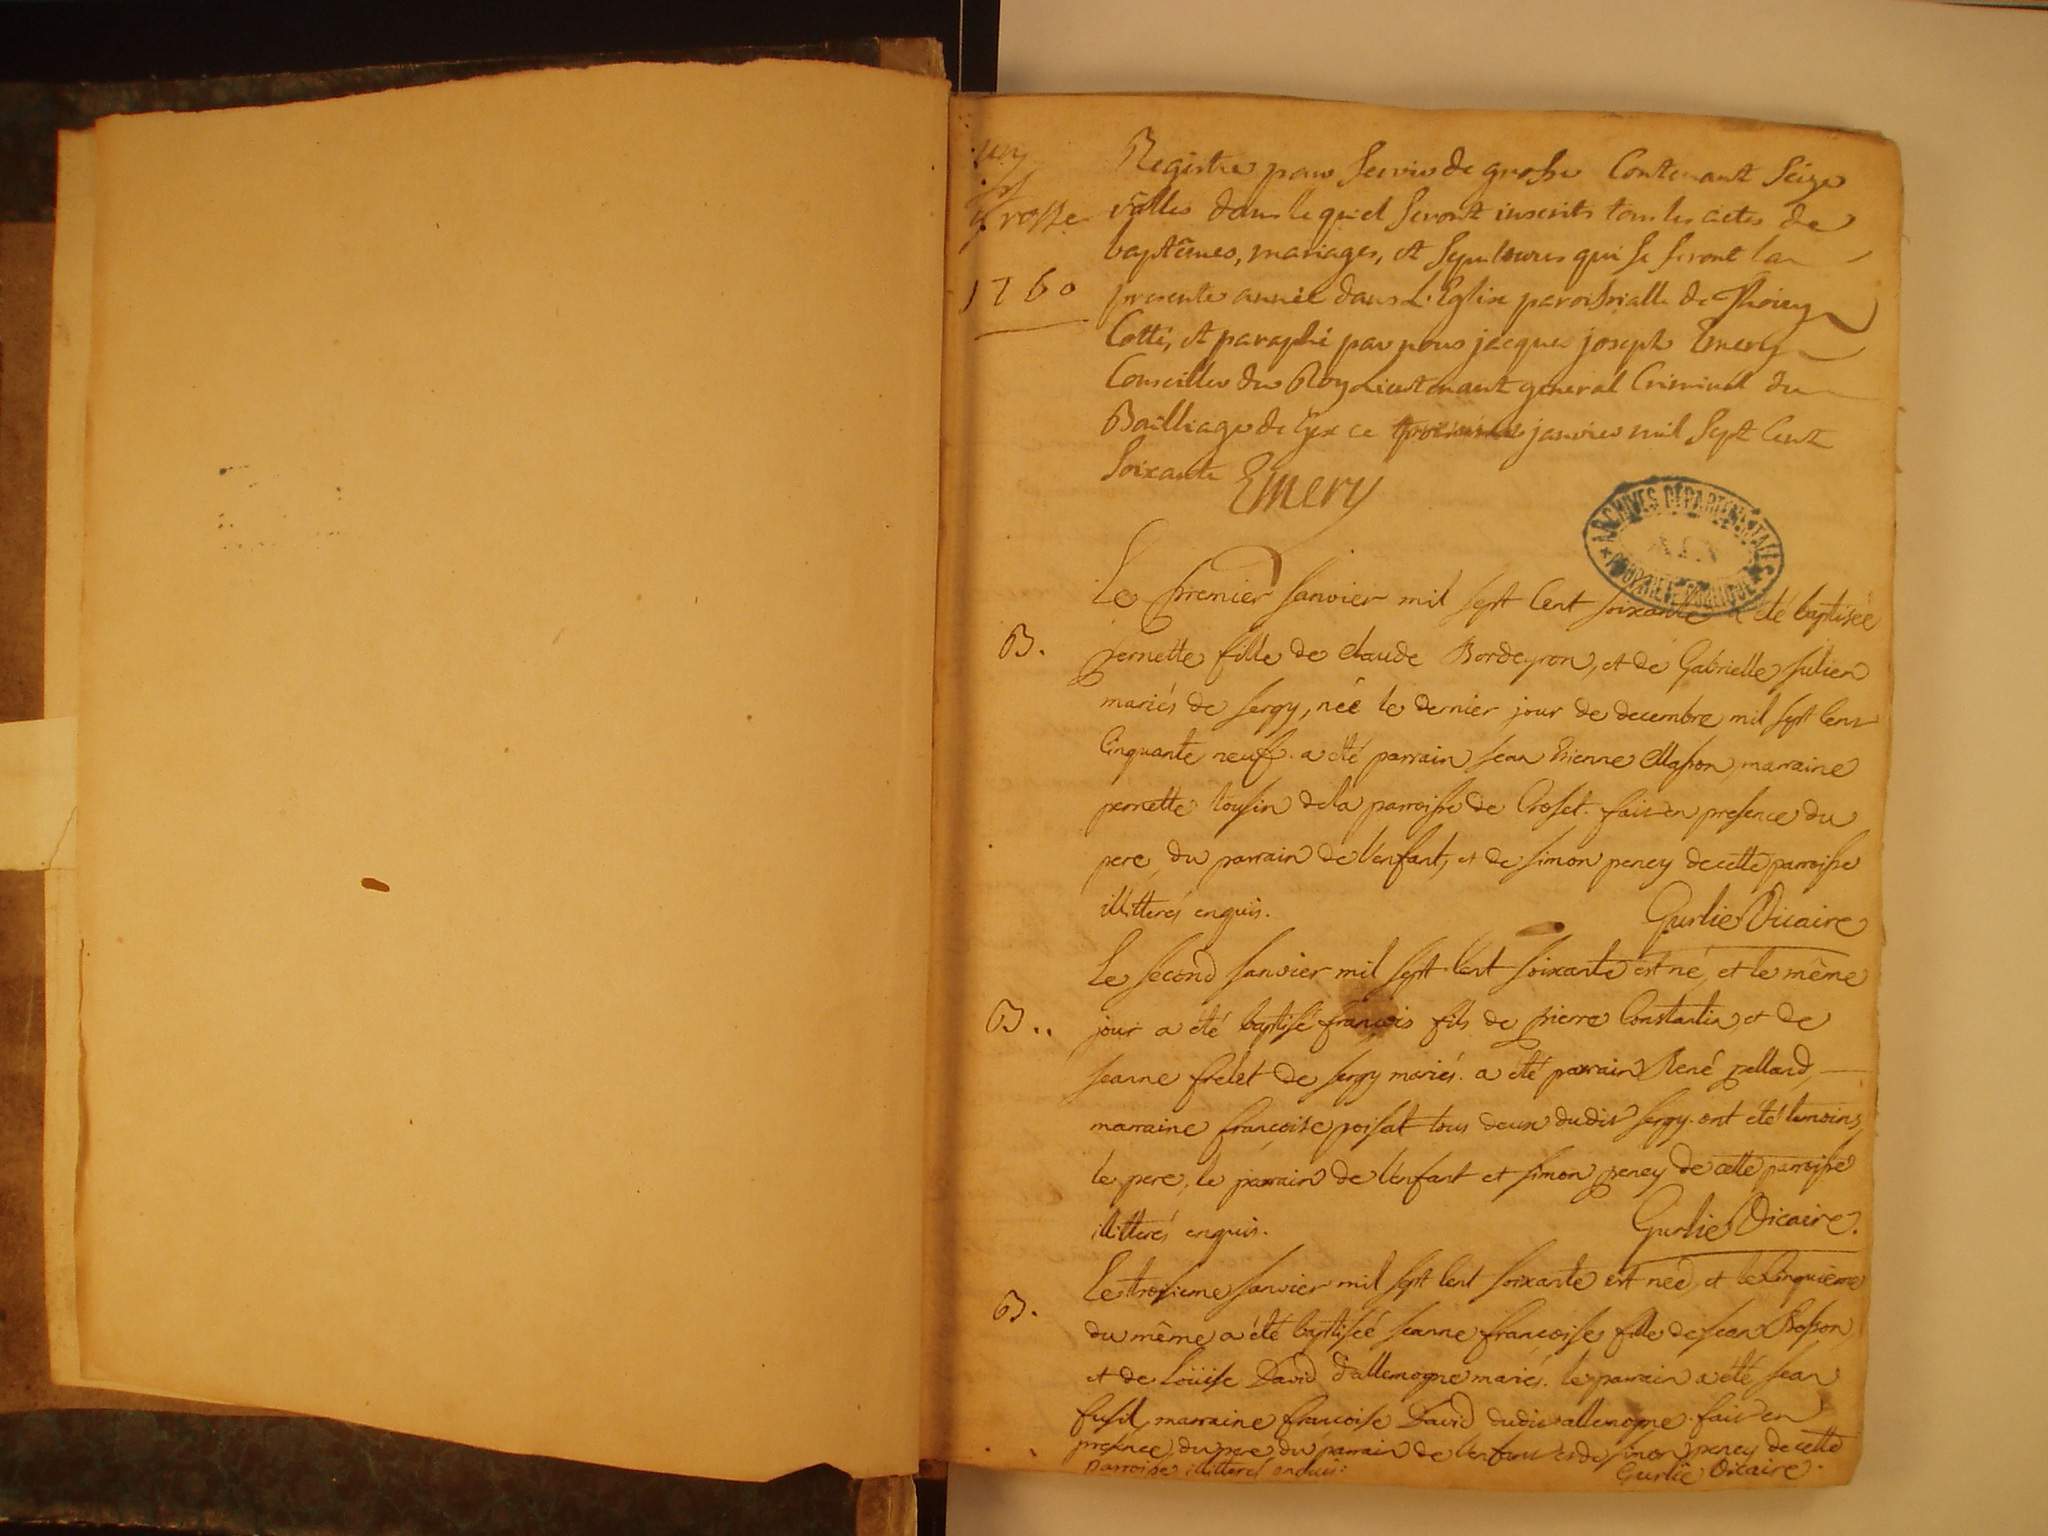 Grosse
1760
Registre pour servir de grosse Contenant seize
folles dans lequel seront inscrits tous les actes de
baptêmes, mariages, et sepultures qui se feront la
presente année dans L'Eglise paroissialle de Thoiry
Cotté, et paraphé par nous jacques joseph Emery
Conseiller du Roy Lieutenant general Criminel du
Bailliage de Gex ce janvier mil sept cent
soixante Emery
ARCHIVES DÉPARTEMENTALES
AIN
PROPRIÉTÉ PUBLIQUE
Le premier janvier mil sept cent soixante a été baptisée
B. pernette fille de claude Bordeyron, et de Gabrielle julien
mariés de sergy, née le dernier jour de decembre mil sept cent
cinquante neuf. a été parrain jean Etienne Masson, marraine
pernette tousin de la parroisse de Croset. fait en presence du
pere, du parrain de l'enfant, et de simon peney de cette parroisse
illitterés enquis. Gurlie Vicaire
Le second janvier mil sept cent soixante est né, et le même
B.. jour a été baptisé francois fils de pierre Constantin et de
jeanne frelet de sergy mariés. a été parrain René pelland,
marraine françoise poisat tous deux dudit sergy. ont été temoins,
le pere, le parrain de l'enfant et simon peney de cette parroisse
illitterés enquis. Gurlie Vicaire.
Le troisieme janvier mil sept cent soixante est née, et le cinquieme
B. du même a été baptisée jeanne françoise fille de jean Bosson,
et de Loüise David d'allemogne mariés. le parrain a été jean
fusil, marraine francoise David dudit allemogne. fait en
presence du pere, du parrain de l'enfant et de simon peney de cette
parroisse illitterés enquis. Gurlie Vicaire.